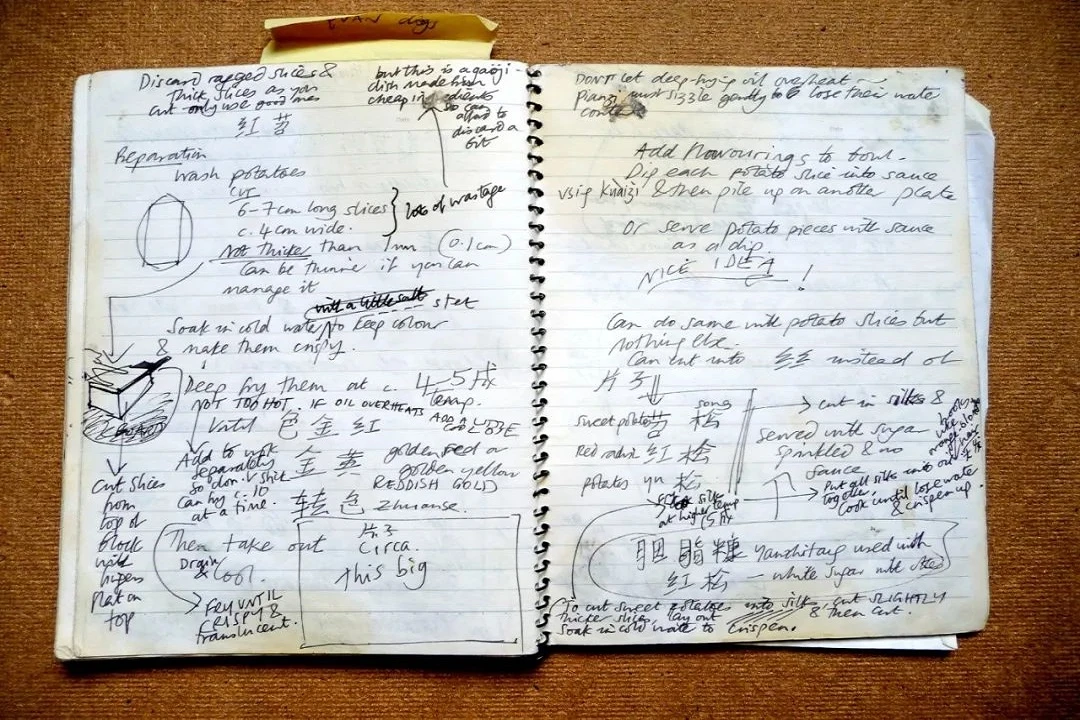 Discard ragged slices &
thick slices as you
cut - only use good ones
红苕
but this is a gaoji
dish made from
cheap ingredients
so can
afford to
discard a
bit
Preparation
wash potatoes
cut
6-7cm long slices
c. 4cm wide.
lots of wastage
Not Thicker than 1mm (0.1cm)
Can be thinner if you can
manage it
with a little salt stet
Soak in cold water to keep colour
& make them crispy.
Deep fry them at c. 4-5成
temp.
NOT TOO HOT. IF OIL OVERHEATS ADD
Until 色金红
Add to wok
separately
so don't stick
Can fry c. 10
at a time.
金黄
golden red or
golden yellow
REDDISH GOLD
转色 zhuanse.
cut slices
from
top of
block
with
fingers
flat on
top
Then take out
Drain
& cool.
FRY UNTIL
CRISPY &
translucent.
片子
Circa.
this big
DON'T let deep-frying oil overheat -
pianzi must sizzle gently to lose their water
content
Add flavourings to bowl.
Dip each potato slice into sauce
using kuaizi & then pile up on another plate
Or serve potato pieces with sauce
as a dip.
NICE IDEA!
Can do same with potato slices but
nothing else.
Can cut into 丝 instead of
片子
sweet potato 苕松
song
Red radish 红松
potatoes yu 松
cut in silks &
served with sugar
sprinkled & no
sauce
silks
at higher temp
(5成
Put all silks into oil
together.
Cook until lose water
& crispen up.
胭脂糖 yanzhitang used with
红松 - white sugar with
To cut sweet potatoes into silk, cut SLIGHTLY
thicker slices, lay out & then cut.
Soak in cold water to crispen.